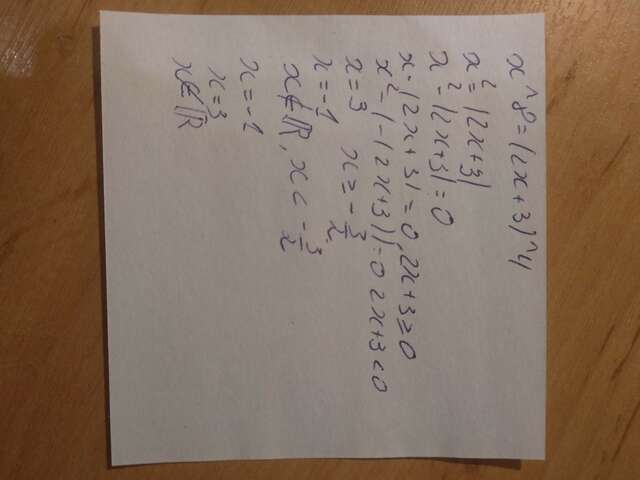 x^8=(2x+3)^4
x²=|2x+3|
x²-|2x+3|=0
x-(2x+3)=0, 2x+3≥0
x²-(-(2x+3))=0 2x+3<0
x=3 x≥-3/2
x=-1
x∉ℝ, x<-3/2
x=-1
x=3
x∉ℝ